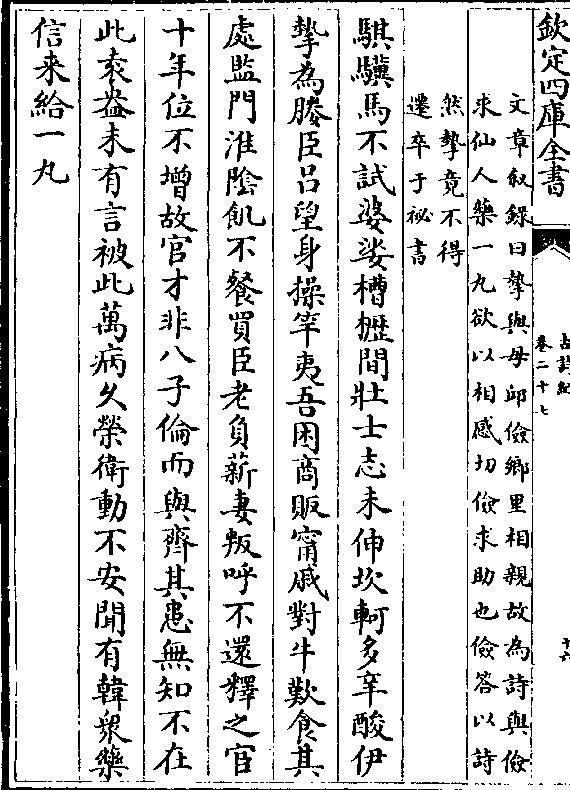 欽定四庫全書
古詩紀
卷二十七
十六
文章叙録曰摯與毋邱儉鄉里相親故為詩與儉
求仙人藥一丸欲以相感切儉求助也儉答以詩
然摯竟不得
遷卒于祕書
騏驥馬不試婆娑槽櫪間壯士志未伸坎軻多辛酸伊
摯為媵臣吕望身操竿夷吾困商販甯戚對牛歎食其
處監門淮隂飢不餐買臣老負薪妻叛呼不還釋之官
十年位不增故官才非八子倫而與齊其患無知不在
此袁盎未有言被此萬病久榮衛動不安聞有韓衆藥
信来給一丸